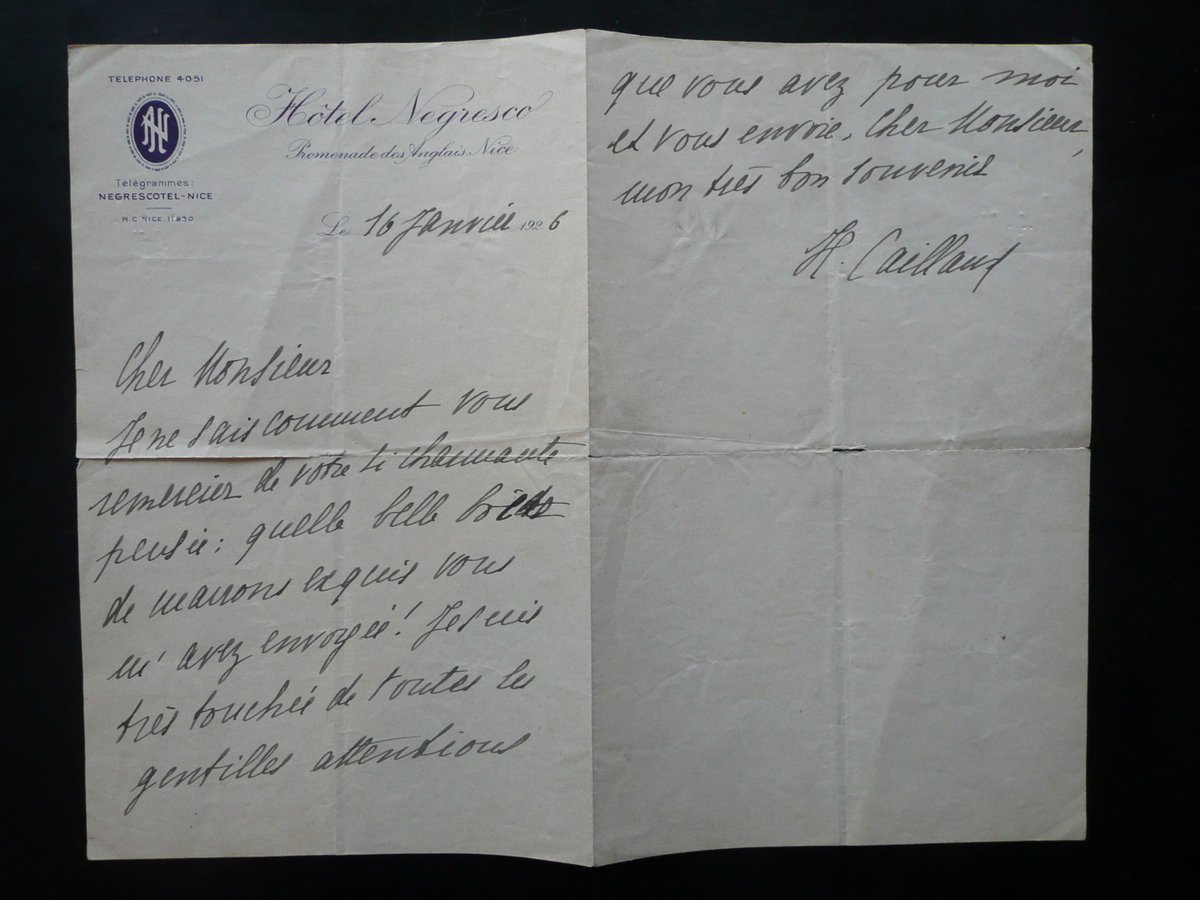 TELEPHONE 4-0-51
Hôtel Negresco
Promenade des Anglais, Nice
Télégrammes:
NEGRESCOTEL-NICE
R.C. NICE, 11.830
Le 16 Janvier 1926
Cher Monsieur
Je ne sais comment vous
remercier de votre si charmante
pensée: quelle belle boîte
de marrons exquis vous
m'avez envoyée! Je suis
très touchée de toutes les
gentilles attentions
que vous avez pour moi
et vous envoie, Cher Monsieur,
mon très bon souvenir
H. Caillaux